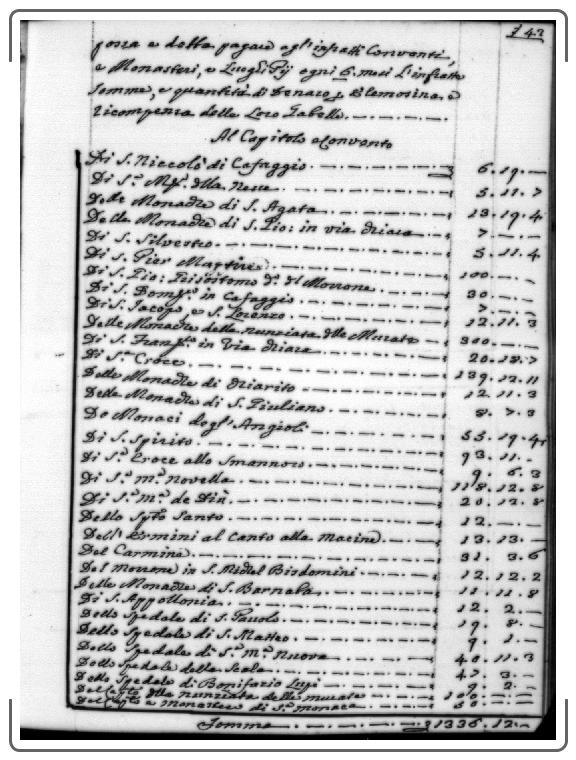 142
possa e debba pagare agl'infratti Conventi,
e Monasteri, e Luoghi Pij ogni 6. mesi l'infratte
somme, e quantità di Denaro p Elemosina e
ricompensa delle Loro Gabelle.
Al Capitolo e Convento
Di S. Niccolò di Cafaggio 6.19.—
Di S.ª M.ª dlla Neve 5.11.7
Delle Monache di S. Agata 13.19.4
Delle Monache di S. Gio: in via chiara 7.—.—
Di S. Silvestro 5.11.4
Di S. Pier Martire 100.—.—
Di S. Gio: Grisostomo d.º dl Morrone 30.—.—
Di S. Dom.co in Cafaggio 7.—.—
Di S. Jacopo, e S. Lorenzo 12.11.3
Delle Monache della nunziata dlle Murate 300.—.—
Di S. Fran.co in Via chiara 20.18.7
Di S.ª Croce 139.12.11
Delle Monache di chiarito 12.11.3
Delle Monache di S. Giuliano 8.7.3
De Monaci degl'Angioli 55.19.4
Di S. Spirito 93.11.—
Di S.ª Croce allo Smannoro 9.6.3
Di S.ª M.ª novella 118.12.8
Di S.ª M.ª de 20.12.8
Dello Spto Santo 12.—.—
Dell'Ermini al Canto alla macine 13.13.—
Del Carmine 31.3.6
Del morrone in S. Michel Bisdomini 12.12.2
Delle Monache di S. Barnaba 11.11.8
Di S. Appollonia 12.2.—
Dello Spedale di S. Pauolo 19.8.—
Dello Spedale di S. Matteo 9.1.—
Dello Spedale di S.ª M.ª Nuova 40.11.3
Dello Spedale della Scala 47.3.—
Dello Spedale di Bonifazio Lupi 9.2.—
dlla nunziata delle murate 109.—.—
e monastero di S.ª monaca 60.—.—
Somma 1336.12.—